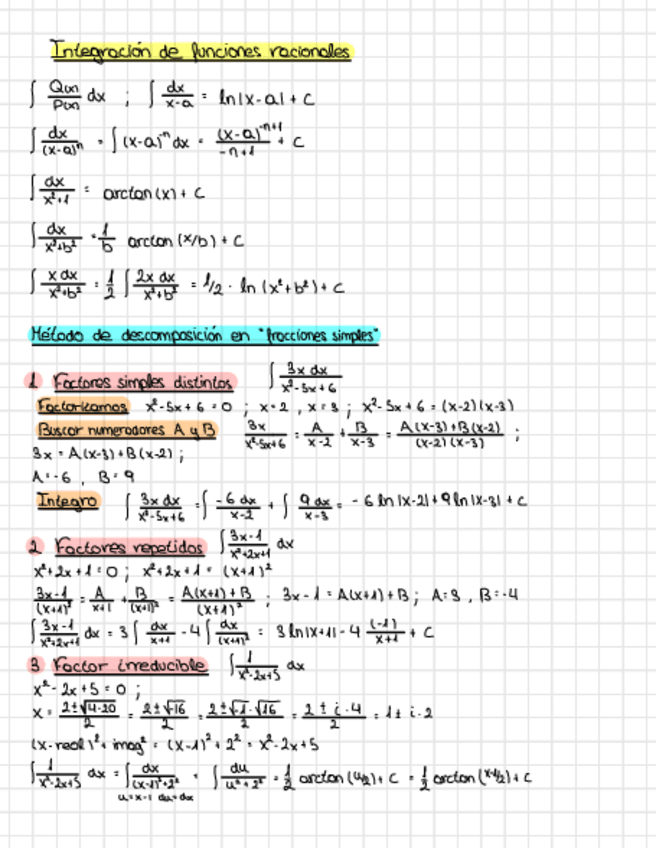 Integración de funciones racionales
∫ Q(x)/P(x) dx ; ∫ dx/(x-a) = ln|x-a| + C
∫ dx/(x-a)ⁿ = ∫ (x-a)⁻ⁿ dx = (x-a)⁻ⁿ⁺¹/(-n+1) + C
∫ dx/(x²+1) = arctan(x) + C
∫ dx/(x²+b²) = 1/b arctan(x/b) + C
∫ x dx/(x²+b²) = 1/2 ∫ 2x dx/(x²+b²) = 1/2 · ln(x²+b²) + C
Método de descomposición en "fracciones simples"
1 Factores simples distintos ∫ 3x dx/(x²-5x+6)
Factorizamos x²-5x+6=0 ; x=2 , x=3 ; x²-5x+6 = (x-2)(x-3)
Buscar numeradores A y B 3x/(x²-5x+6) = A/(x-2) + B/(x-3) = (A(x-3)+B(x-2))/((x-2)(x-3)) ;
3x = A(x-3)+B(x-2) ;
A=-6 , B=9
Integro ∫ 3x dx/(x²-5x+6) = ∫ -6 dx/(x-2) + ∫ 9 dx/(x-3) = -6 ln|x-2| + 9 ln|x-3| + C
2 Factores repetidos ∫ (3x-1)/(x²+2x+1) dx
x²+2x+1=0 ; x²+2x+1 = (x+1)²
(3x-1)/(x+1)² = A/(x+1) + B/(x+1)² = (A(x+1)+B)/(x+1)² ; 3x-1 = A(x+1)+B ; A=3 , B=-4
∫ (3x-1)/(x²+2x+1) dx = 3∫ dx/(x+1) - 4∫ dx/(x+1)² = 3 ln|x+1| - 4 (-1)/(x+1) + C
3 Factor irreducible ∫ 1/(x²-2x+5) dx
x²-2x+5=0 ;
x = (2±√(4-20))/2 = (2±√-16)/2 = (2±√-1·√16)/2 = (2±i·4)/2 = 1±i·2
(x-real)²+imag² = (x-1)²+2² = x²-2x+5
∫ 1/(x²-2x+5) dx = ∫ dx/((x-1)²+2²) = ∫ du/(u²+2²) = 1/2 arctan(u/2) + C = 1/2 arctan((x-1)/2) + C
u=x-1 du=dx